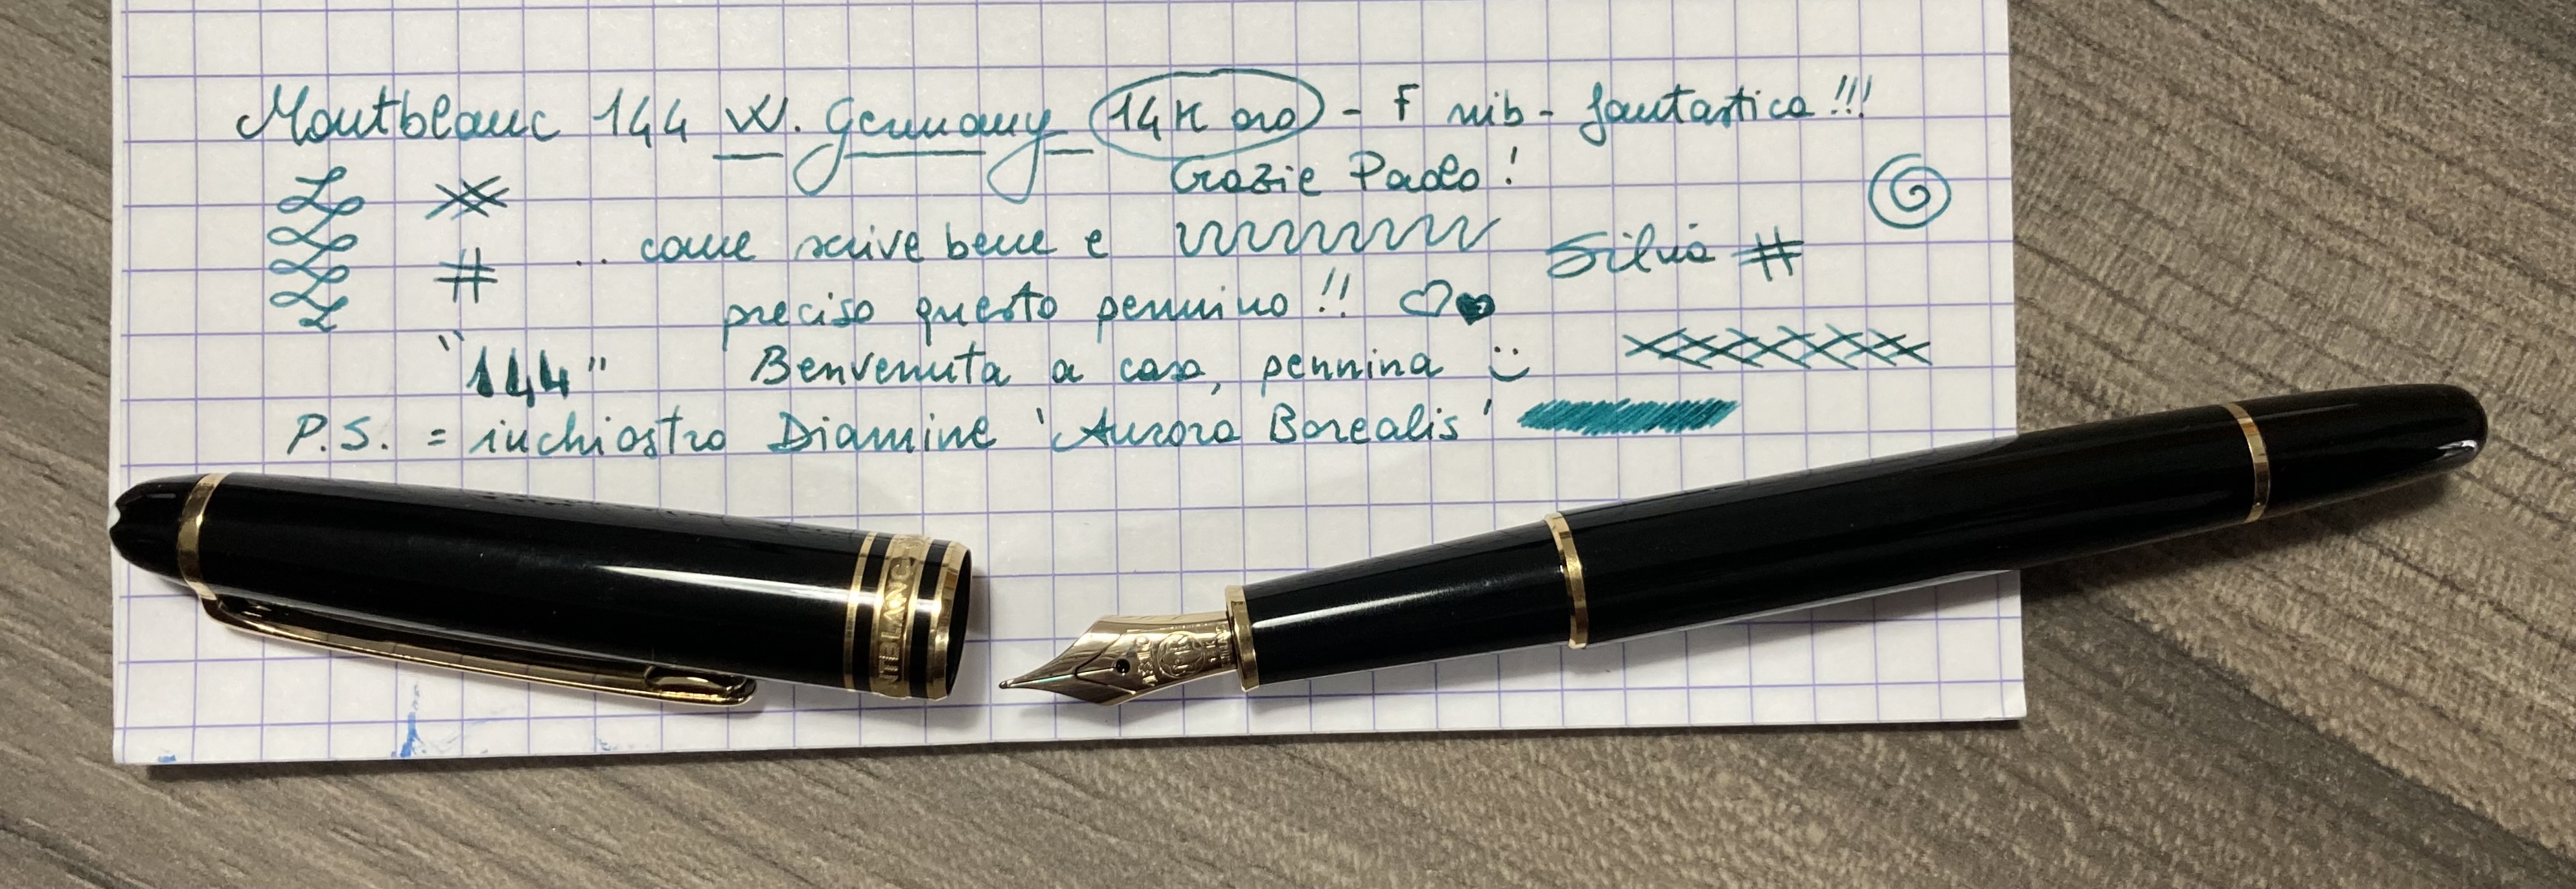 Montblanc 144 W. Germany 14K oro - F nib - fantastica!!!
Grazie Paolo!
.. come scrive bene e
Silvia #
#
preciso questo pennino!!
"144" Benvenuta a casa, pennina :)
P.S. = inchiostro Diamine 'Aurora Borealis'